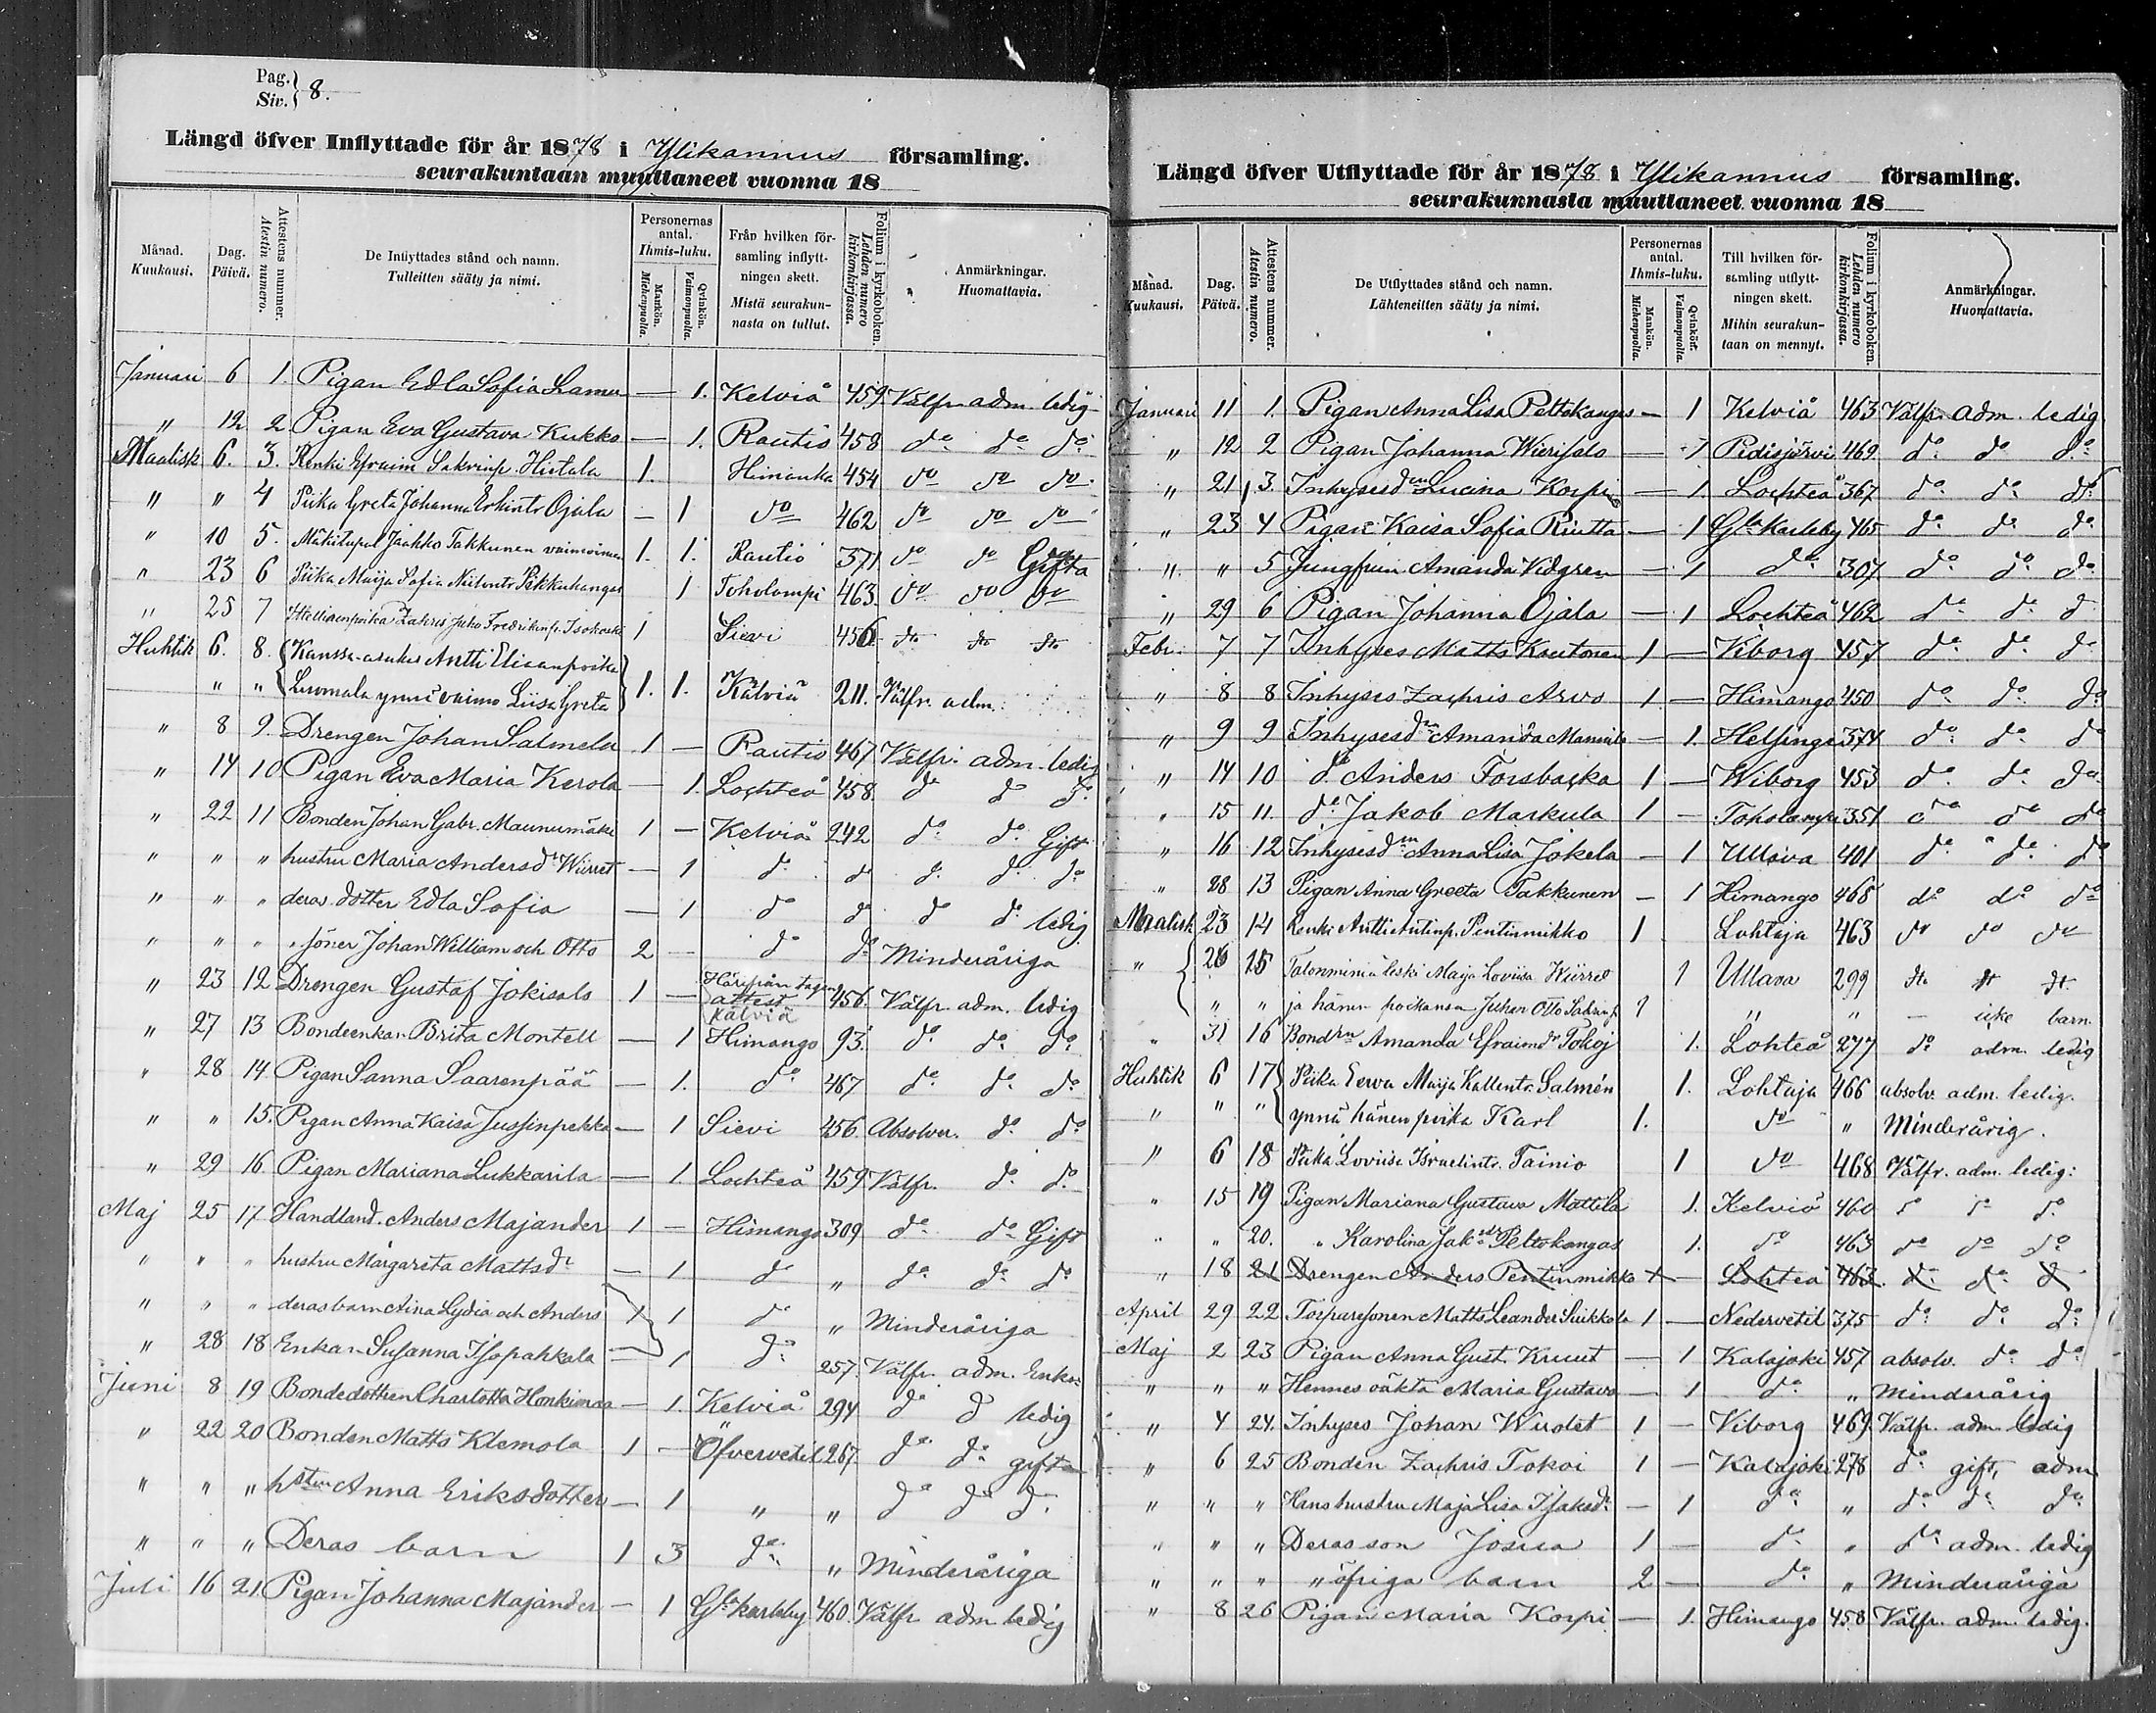 Pag. Siv. 8.
Längd öfver Inflyttade för år 1878 i Ylikannus församling.
seurakuntaan muuttaneet vuonna 18
Månad. Kuukausi. Dag. Päivä. Attestens nummer. Atestin numero. De Inflyttades stånd och namn. Tulleitten sääty ja nimi. Personernas antal. Ihmis-luku. Mankön. Miehenpuolla. Qvinkön. Vaimonpuolla. Från hvilken församling inflyttningen skett. Mistä seurakunnasta on tullut. Folium i kyrkoboken. Lehden numero kirkonkirjassa. Anmärkningar. Huomattavia.
Januari 6 1. Pigan Edla Sofia — 1. Kelviå 459. Välfr. adm. ledig
" 12 2 Pigan Eva Gustava Kukko — 1. Rautio 458 do do do
Maalisk 6. 3. Renki Efraim Sakrinp. Hietala 1. Himanka 454 do do do
" " 4 Piika Greta Johanna Erkintr Ojala — 1 do 462 do do do
" 10 5. Mäkitupal Jaakko Takkunen vaimoinen 1. 1. Rautio 371 do do Gifta
" 23 6 Piika Maija Sofia 1 Toholampi 463 do do do
" 25 7 Zakris Juho Fredrikinp. Isokoski 1 Sievi 456 do do do
Huhtik 6. 8. Kanssa-asukas Antti Eliaanpoika
" " Luomala ynnä vaimo Liisa Greta 1. 1. Kälviä 211. Välfr. adm.
" 8 9. Drengen Johan Salmela 1 — Rautio 467 Välfr. adm. ledig
" 14 10 Pigan Eva Maria Kerola — 1. Lochteå 458. do do do
" 22 11 Bonden Johan Gabr. Maunumäki 1 — Kelviå 242 do do Gift
" " " hustru Maria Andersdr Wiirret — 1 do do do do do
" " " deras dotter Edla Sofia — 1 do do do do ledig
" " " " söner Johan William och Otto 2 — do do Minderåriga
" 23 12 Drengen Gustaf Jokisalo 1 — Härifrån tagen attest Kälviä 456. Välfr. adm. ledig
" 27 13 Bondeenkan Brita Montell — 1 Himango 93. do do do
" 28 14. Pigan Sanna Saarenpää — 1. do 467 do do do
" " 15. Pigan Anna Kaisa Jussinpekka — 1 Sievi 456. Absolver. do do
" 29 16 Pigan Mariana Lukkarila — 1 Lochteå 459 Välfr. do do
Maj 25 17 Handland. Anders Majander 1 — Himango 309 do do Gift
" " " hustru Margareta Mattsdr — 1 do " do do do
" " " deras barn Aina Lydia och Anders 1 1 do " Minderåriga
" 28 18 Enkan Susanna Isopahkala — 1 do 257. Välfr. adm. Enka
Juni 8 19 Bondedottren Charlotta Honkimaa — 1. Kelviå 294 do do ledig
" 22 20 Bonden Matts Klemola 1 — Öfvervetil 267. do do gifta
" " " hstru Anna Eriksdotter — 1 " " do do do
" " " Deras barn 1 3 do " Minderåriga
Juli 16 21. Pigan Johanna Majander — 1 Gla karleby 460. Välfr adm ledig
Längd öfver Utflyttade för år 1878 i Ylikannus församling.
seurakunnasta muuttaneet vuonna 18
Månad. Kuukausi. Dag. Päivä. Attestens nummer. Atestin numero. De Utflyttades stånd och namn. Lähteneitten sääty ja nimi. Personernas antal. Ihmis-luku. Mankön. Miehenpuolla. Qvinkön. Vaimonpuolla. Till hvilken församling utflyttningen skett. Mihin seurakuntaan on mennyt. Folium i kyrkoboken. Lehden numero kirkonkirjassa. Anmärkningar. Huomattavia.
Januari 11 1. Pigan Anna Lisa Peltokangas — 1 Kelviå 463 Välfr. adm. ledig
" 12 2 Pigan Johanna Wierisalo — 1 Pidisjärvi 469. do do do
" 21 3. Inhysesdrn Lucina Korpi — 1 Lochteå 367 do do do
" 23 4 Pigan Kaisa Sofia Riutta — 1 Gla Karleby 465 do do do
" " 5 Jungfrun Amanda Vidgren — 1 do 307 do do do
" 29 6 Pigan Johanna Ojala — 1 Lochteå 462 do do do
Febr. 7 7 Inhyses Matts Kautonen 1 — Viborg 457 do do do
" 8 8 Inhyses Zachris Arvo 1 — Himango 450 do do do
" 9 9 Inhysesdrn Amanda — 1. Helsinge 374 do do do
" 14 10 do Anders Forsbacka 1 — Wiborg 453 do do do
" 15 11. do Jakob Markula 1 — Toholampi 351 do do do
" 16 12 Inhysesdrn Anna Lisa Jokela — 1 Ullava 401 do do do
" 28 13 Pigan Anna Greeta Takkunen — 1 Himango 468 do do do
Maalisk 23 14 Renki Antti Antinp. Pentinmikko 1 Lohtaja 463 do do do
" 26 15 Talonminiä leski Maija Loviisa Wiirret 1 Ullava 299 do do do
" " ja hänen poikansa Juhan Otto 1 " " — icke barn.
" 31 16 Bonddrn Amanda Efraimdr Tokoj 1. Lohteå 277 do adm. ledig
Huhtik 6 17 Piika Eeva Maija Kallentr. Salmén 1. Lohtaja 466 absolv. adm. ledig.
" " " ynnä hänen poika Karl 1. do " Minderårig.
" 6 18 Piika Loviisa Israelintr. Tainio 1 do 468 Välfr. adm. ledig.
" 15 19 Pigan Mariana Gustava Mattila 1. Kelviå 460 do do do
" " 20. " Karolina Jaksdr Peltokangas 1. do 463 do do do
" 18 21 Drengen Anders Pentinmikko 1 — Lohteå 463. do do do
April 29 22 Torparesonen Matts Leander Siikkola 1 — Nedervetil 375 do do do
Maj 2 23 Pigan Anna Gust. Kruut — 1 Kalajoki 457 absolv. do do
" " " Hennes oäkta Maria Gustava — 1 do " Minderårig
" 4 24. Inhyses Johan Wirolet 1 — Viborg 469. Välfr. adm. ledig
" 6 25 Bonden Zachris Tokoi 1 — Kalajoki 278 do gift, adm
" " " Hans hustru Maja Lisa Isaksdr — 1 do " do do do
" " " Deras son Josua 1 — do " do adm. ledig
" " " " öfriga barn 2 — do " Minderåriga
" 8 26 Pigan Maria Korpi — 1. Himango 458 Välfr. adm. ledig.